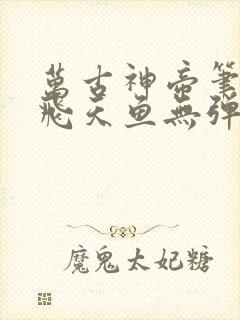 萬古神帝筆
飛天魚無彈
魔鬼太妃糖